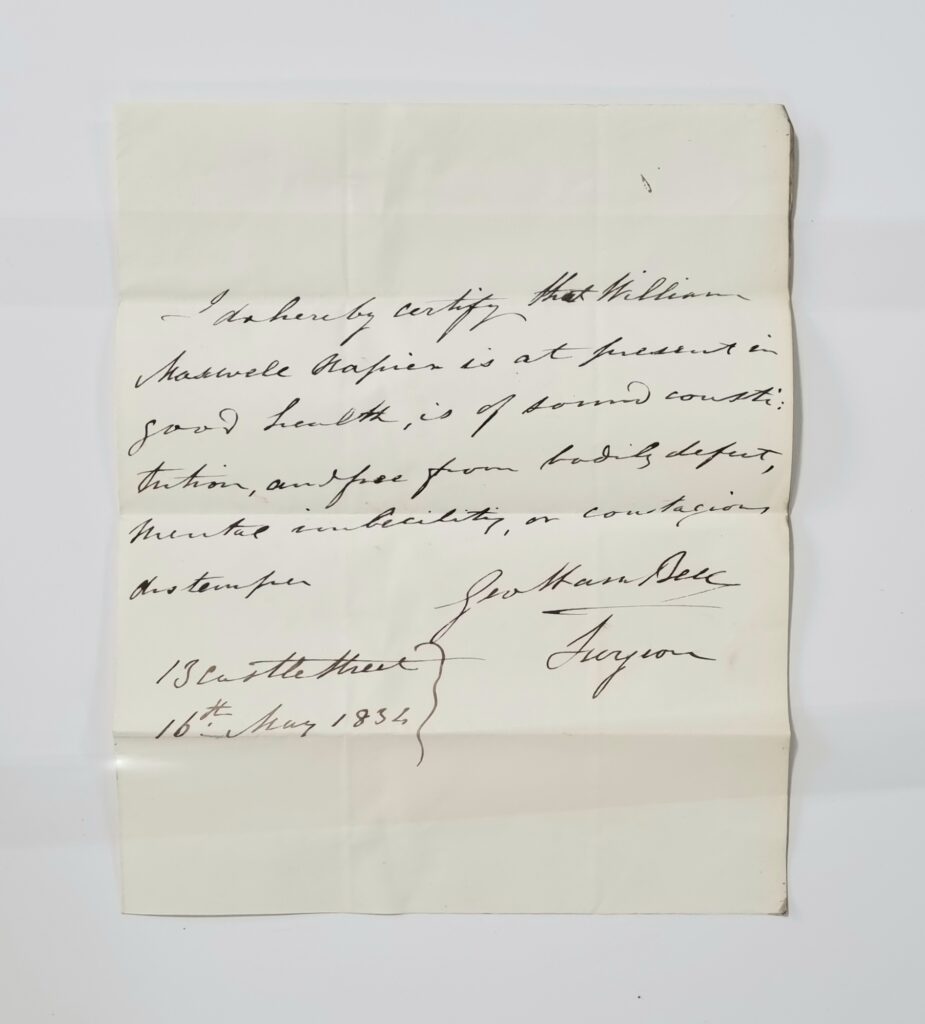 I do hereby certify that William
Maxwell Napier is at present in
good health, is of sound consti:
tution, and free from bodily defect,
mental imbecility, or contagious
distemper
Geo Ham Bell
Surgeon
13 Castle Street
16th May 1834